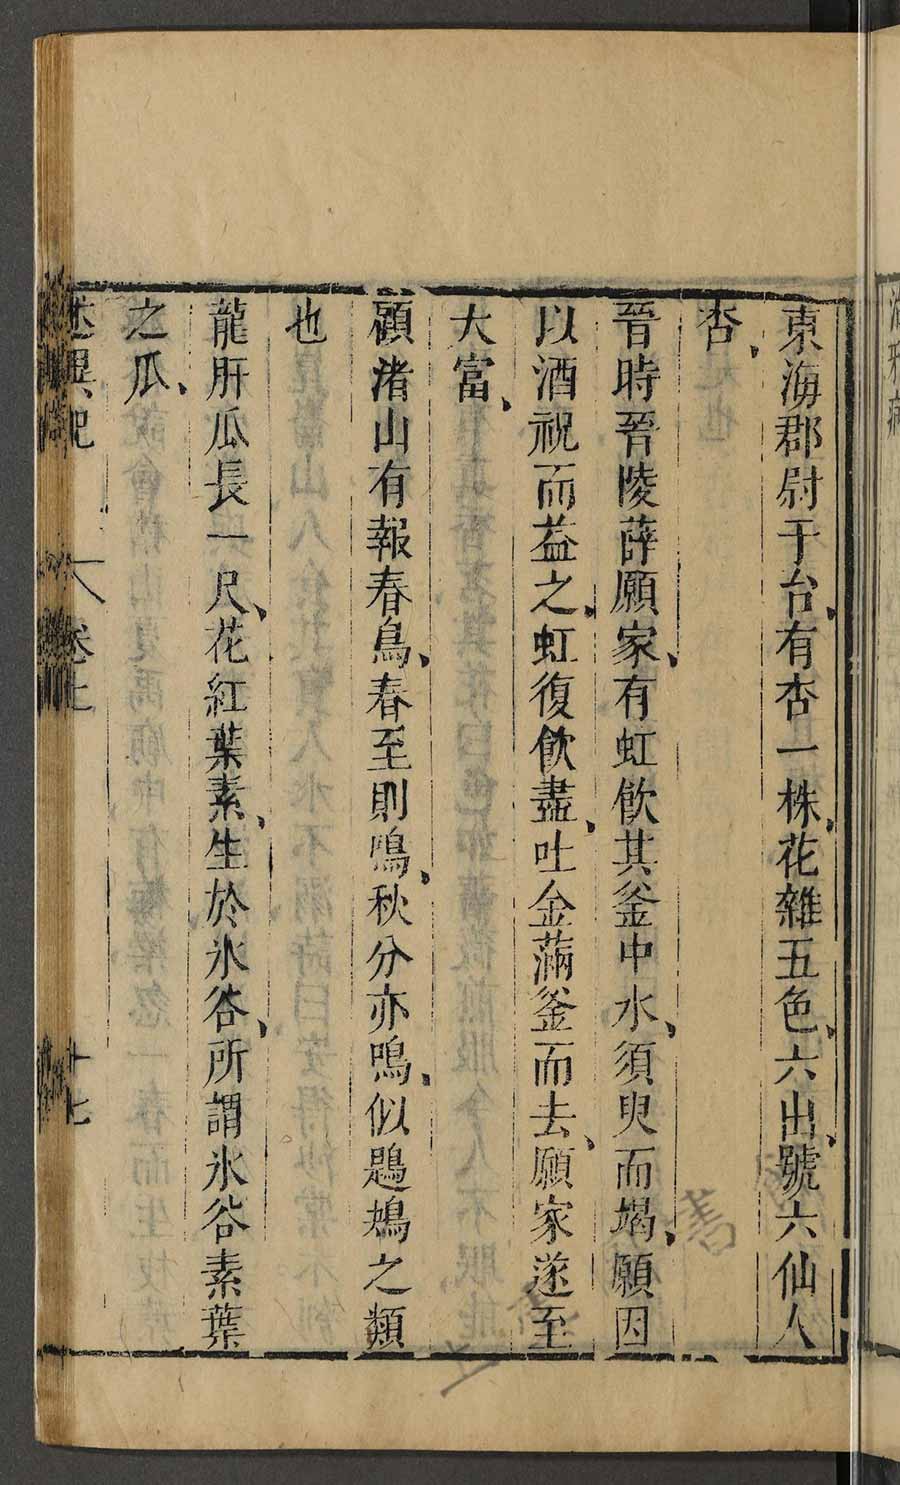 東海郡尉于台、有杏一株、花雜五色、六出、號六仙人
杏、
晉時晉陵薛願家、有虹飲其釜中水、須臾而竭、願因
以酒祝而益之、虹復飲盡、吐金滿釜而去、願家遂至
大富、
顧渚山有報春鳥、春至則鳴、秋分亦鳴、似鶗鴂之類
也
龍肝瓜長一尺、花紅葉素、生於氷谷、所謂氷谷素葉
之瓜、
述異記 卷上 十七